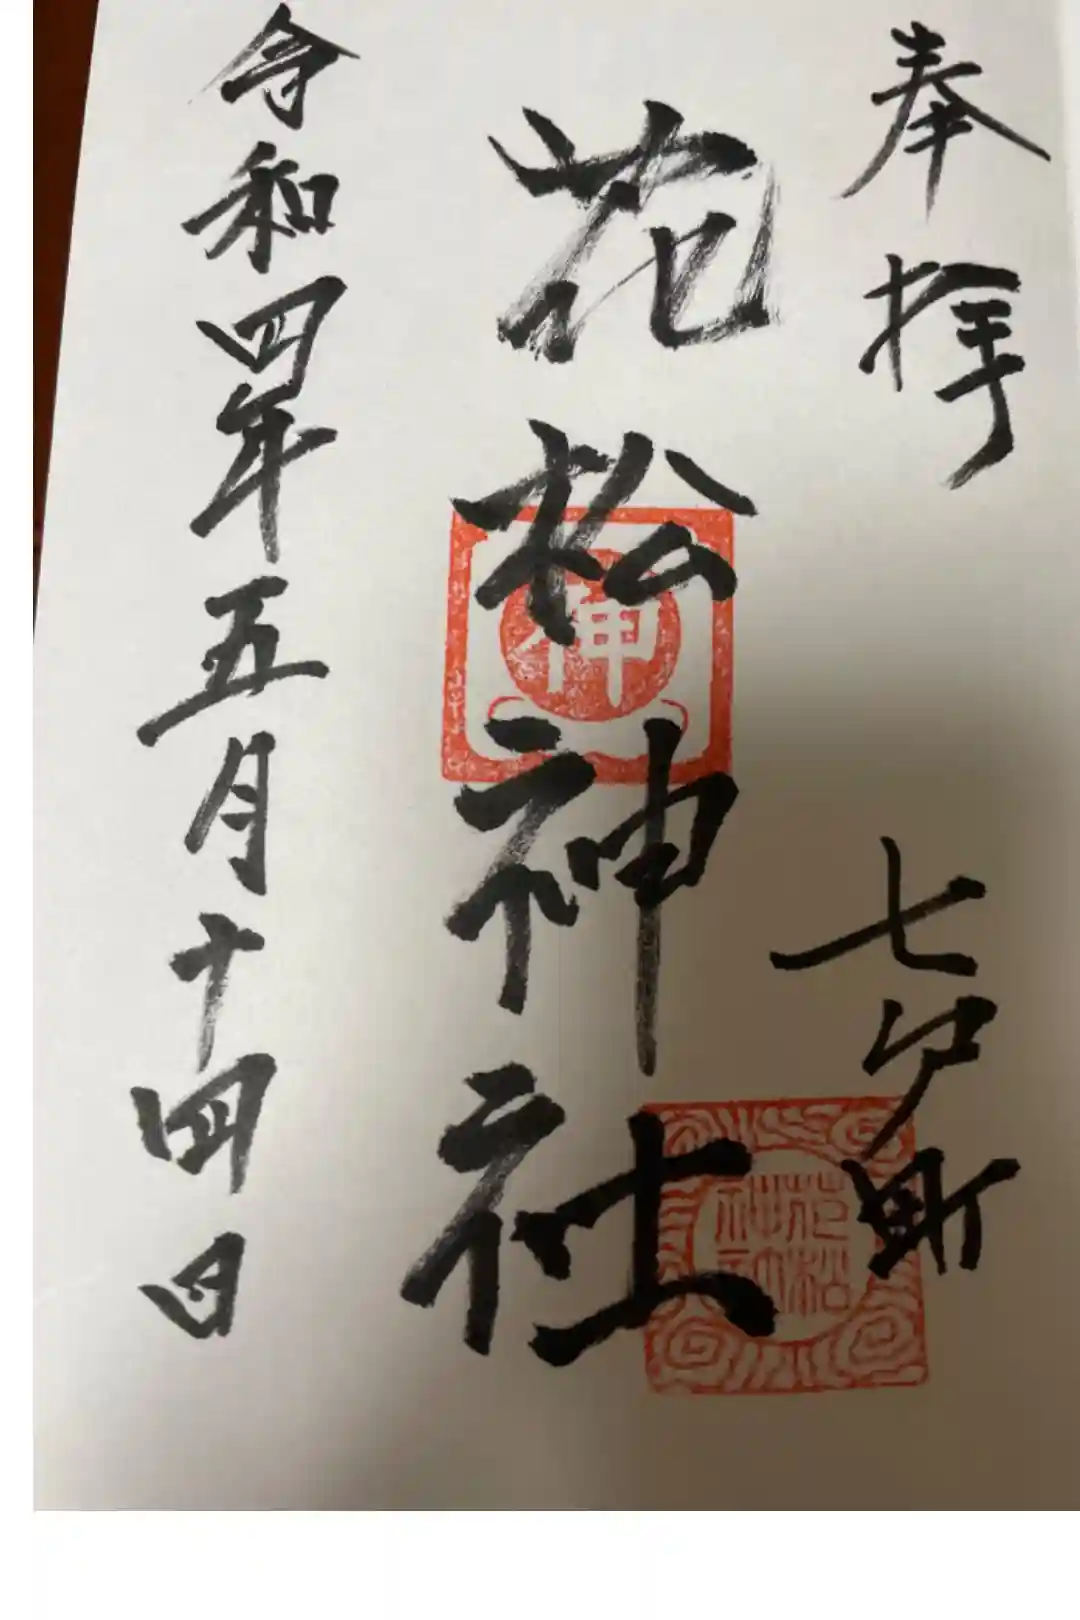 奉拝
七戸町
花松神社
神
花松
神社
令和四年五月十四日